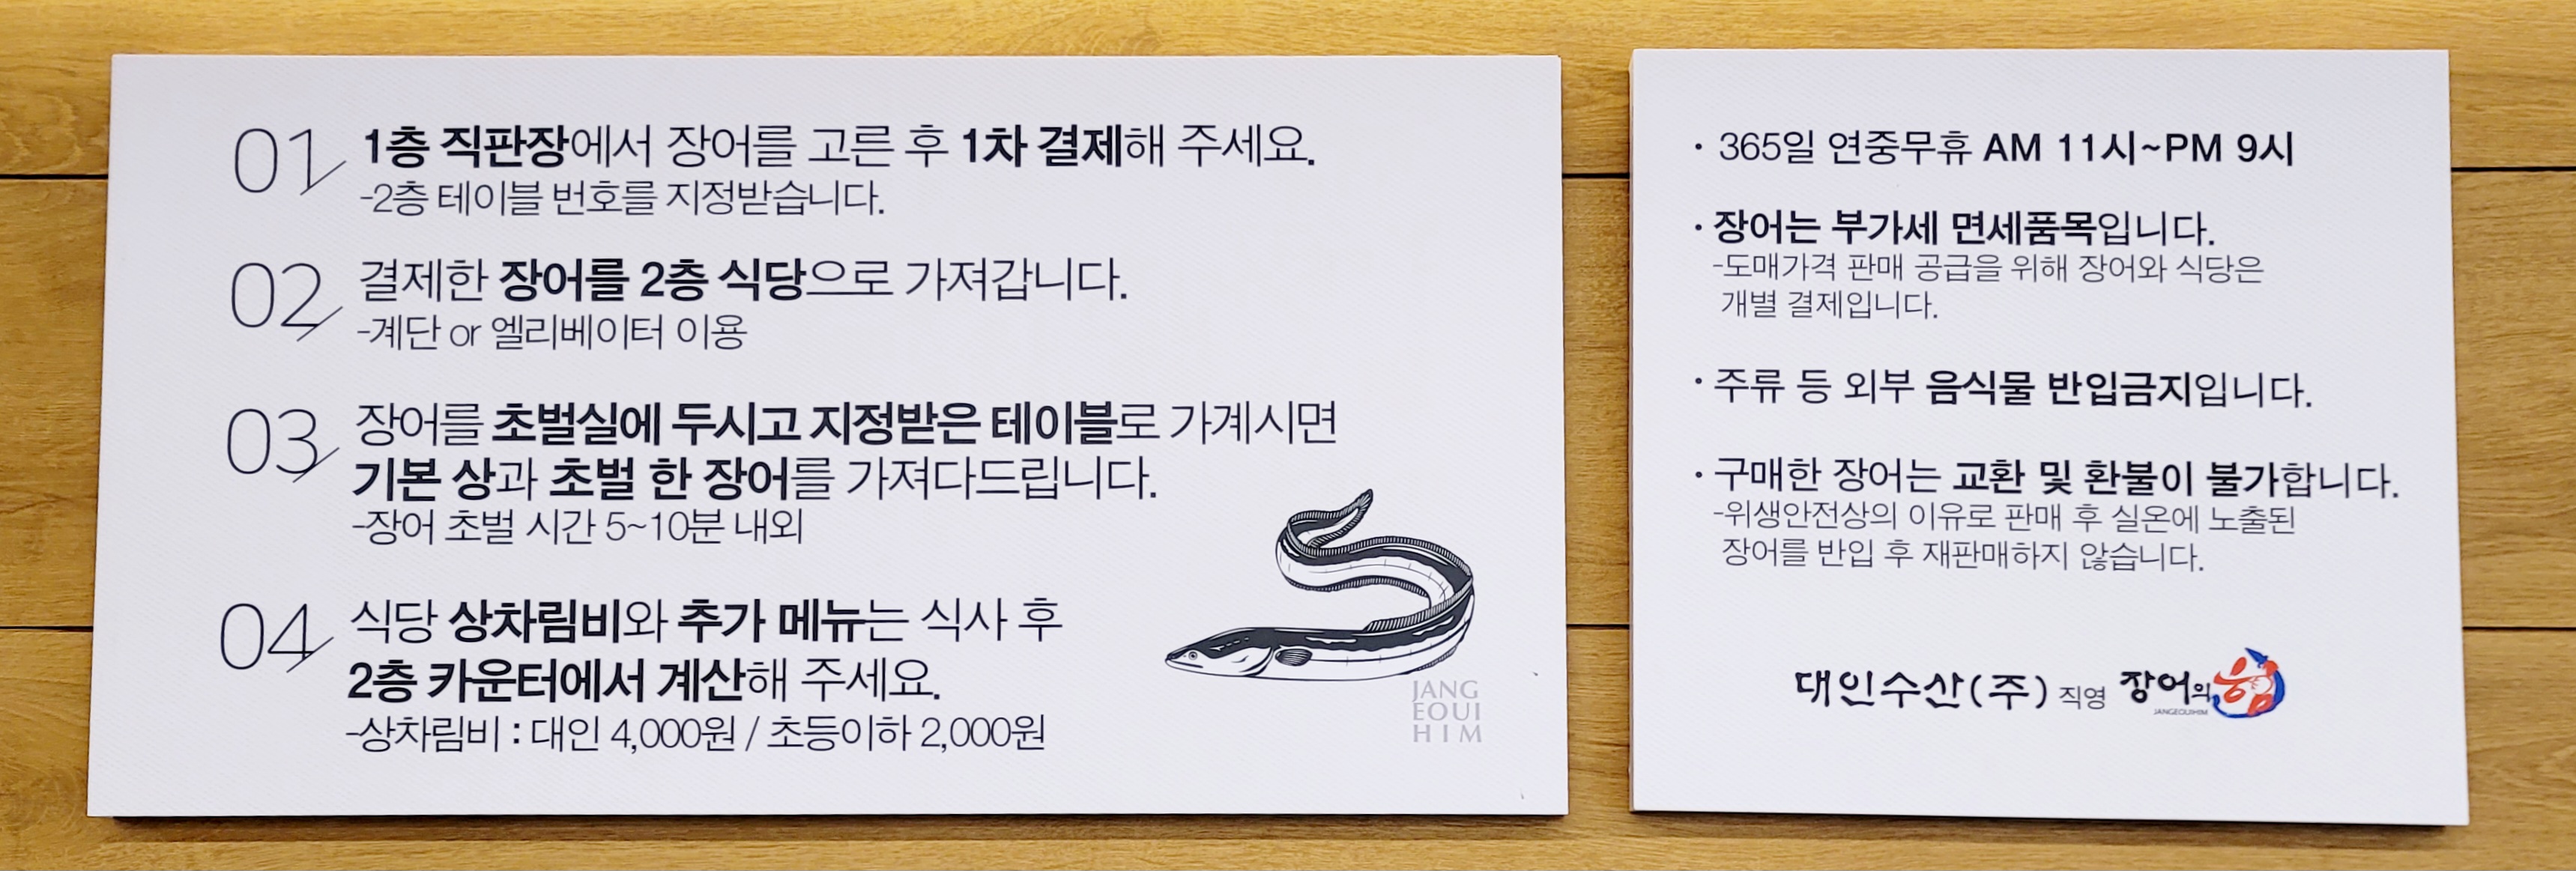 01 1층 직판장에서 장어를 고른 후 1차 결제해 주세요.
-2층 테이블 번호를 지정받습니다.
02 결제한 장어를 2층 식당으로 가져갑니다.
-계단 or 엘리베이터 이용
03 장어를 초벌실에 두시고 지정받은 테이블로 가계시면
기본 상과 초벌 한 장어를 가져다드립니다.
-장어 초벌 시간 5~10분 내외
04 식당 상차림비와 추가 메뉴는 식사 후
2층 카운터에서 계산해 주세요.
-상차림비 : 대인 4,000원 / 초등이하 2,000원
JANG
EOUI
HIM
· 365일 연중무휴 AM 11시~PM 9시
· 장어는 부가세 면세품목입니다.
-도매가격 판매 공급을 위해 장어와 식당은
개별 결제입니다.
· 주류 등 외부 음식물 반입금지입니다.
· 구매한 장어는 교환 및 환불이 불가합니다.
-위생안전상의 이유로 판매 후 실온에 노출된
장어를 반입 후 재판매하지 않습니다.
대인수산(주) 직영 장어의힘
JANGEOUIHIM